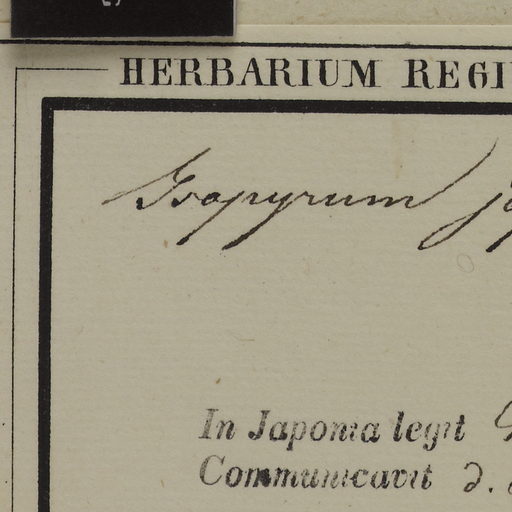 HERBARIUM REGI
Isopyrum
In Japonia legit
Communicavit d.